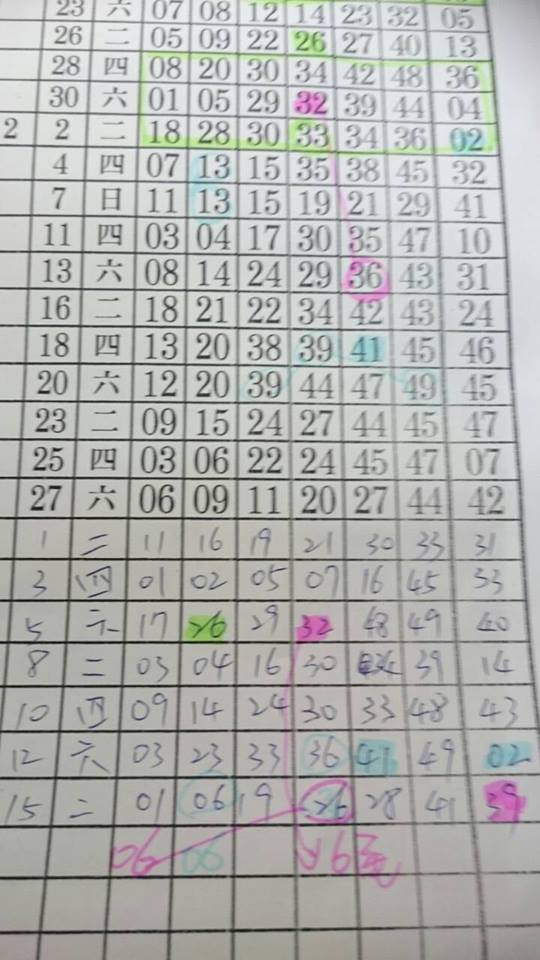 23 六 07 08 12 14 23 32 05
26 二 05 09 22 26 27 40 13
28 四 08 20 30 34 42 48 36
30 六 01 05 29 32 39 44 04
2 2 二 18 28 30 33 34 36 02
4 四 07 13 15 35 38 45 32
7 日 11 13 15 19 21 29 41
11 四 03 04 17 30 35 47 10
13 六 08 14 24 29 36 43 31
16 二 18 21 22 34 42 43 24
18 四 13 20 38 39 41 45 46
20 六 12 20 39 44 47 49 45
23 二 09 15 24 27 44 45 47
25 四 03 06 22 24 45 47 07
27 六 06 09 11 20 27 44 42
1 二 11 16 19 21 30 33 31
3 四 01 02 05 07 16 45 33
5 六 17 26 29 32 48 49 40
8 二 03 04 16 30 39 14
10 四 09 14 24 30 33 48 43
12 六 03 23 33 36 41 49 02
15 二 01 06 19 26 28 41 39
06 06